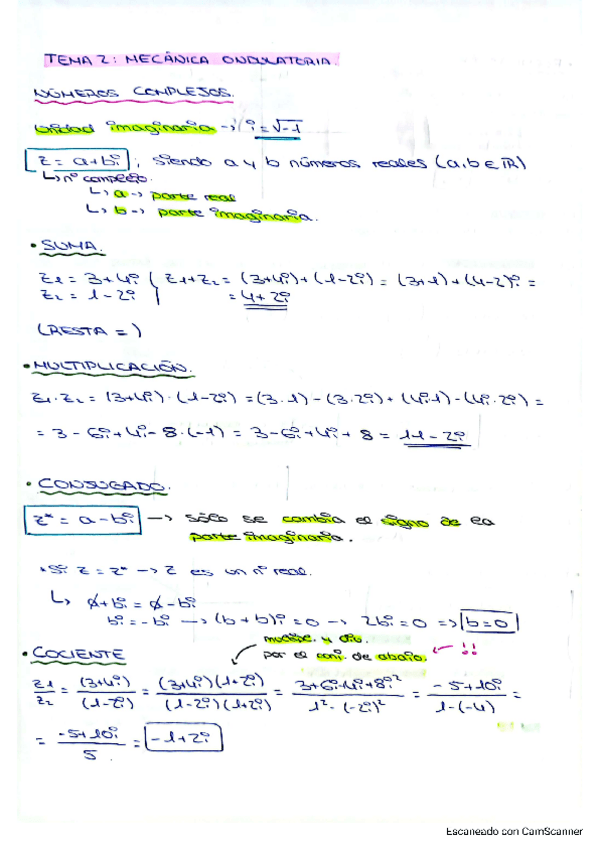 TEMA 2: MECÁNICA ONDULATORIA.
NÚMEROS COMPLEJOS.
Unidad imaginaria → i = √-1
z = a+bi ; siendo a y b números reales (a,b ∈ ℝ)
↳ nº complejo.
↳ a → parte real
↳ b → parte imaginaria.
• SUMA.
z1 = 3+4i
z2 = 1-2i
z1+z2 = (3+4i)+(1-2i) = (3+1)+(4-2)i =
= 4+2i
(RESTA = )
• MULTIPLICACIÓN.
z1·z2 = (3+4i)·(1-2i) = (3·1)-(3·2i)+(4i·1)-(4i·2i) =
= 3-6i+4i-8·(-1) = 3-6i+4i+8 = 11-2i
• CONJUGADO.
z* = a-bi → sólo se cambia el signo de la
parte imaginaria.
• Si z = z* → z es un nº real.
↳ a+bi = a-bi
bi = -bi → (b+b)i = 0 → 2bi = 0 => b=0
• COCIENTE
multipl. y div.
por el conj. de abajo. ← !!
z1/z2 = (3+4i)/(1-2i) = (3+4i)(1+2i)/(1-2i)(1+2i) = 3+6i+4i+8i²/1²-(-2i)² = -5+10i/1-(-4) =
= -5+10i/5 = -1+2i
Escaneado con CamScanner